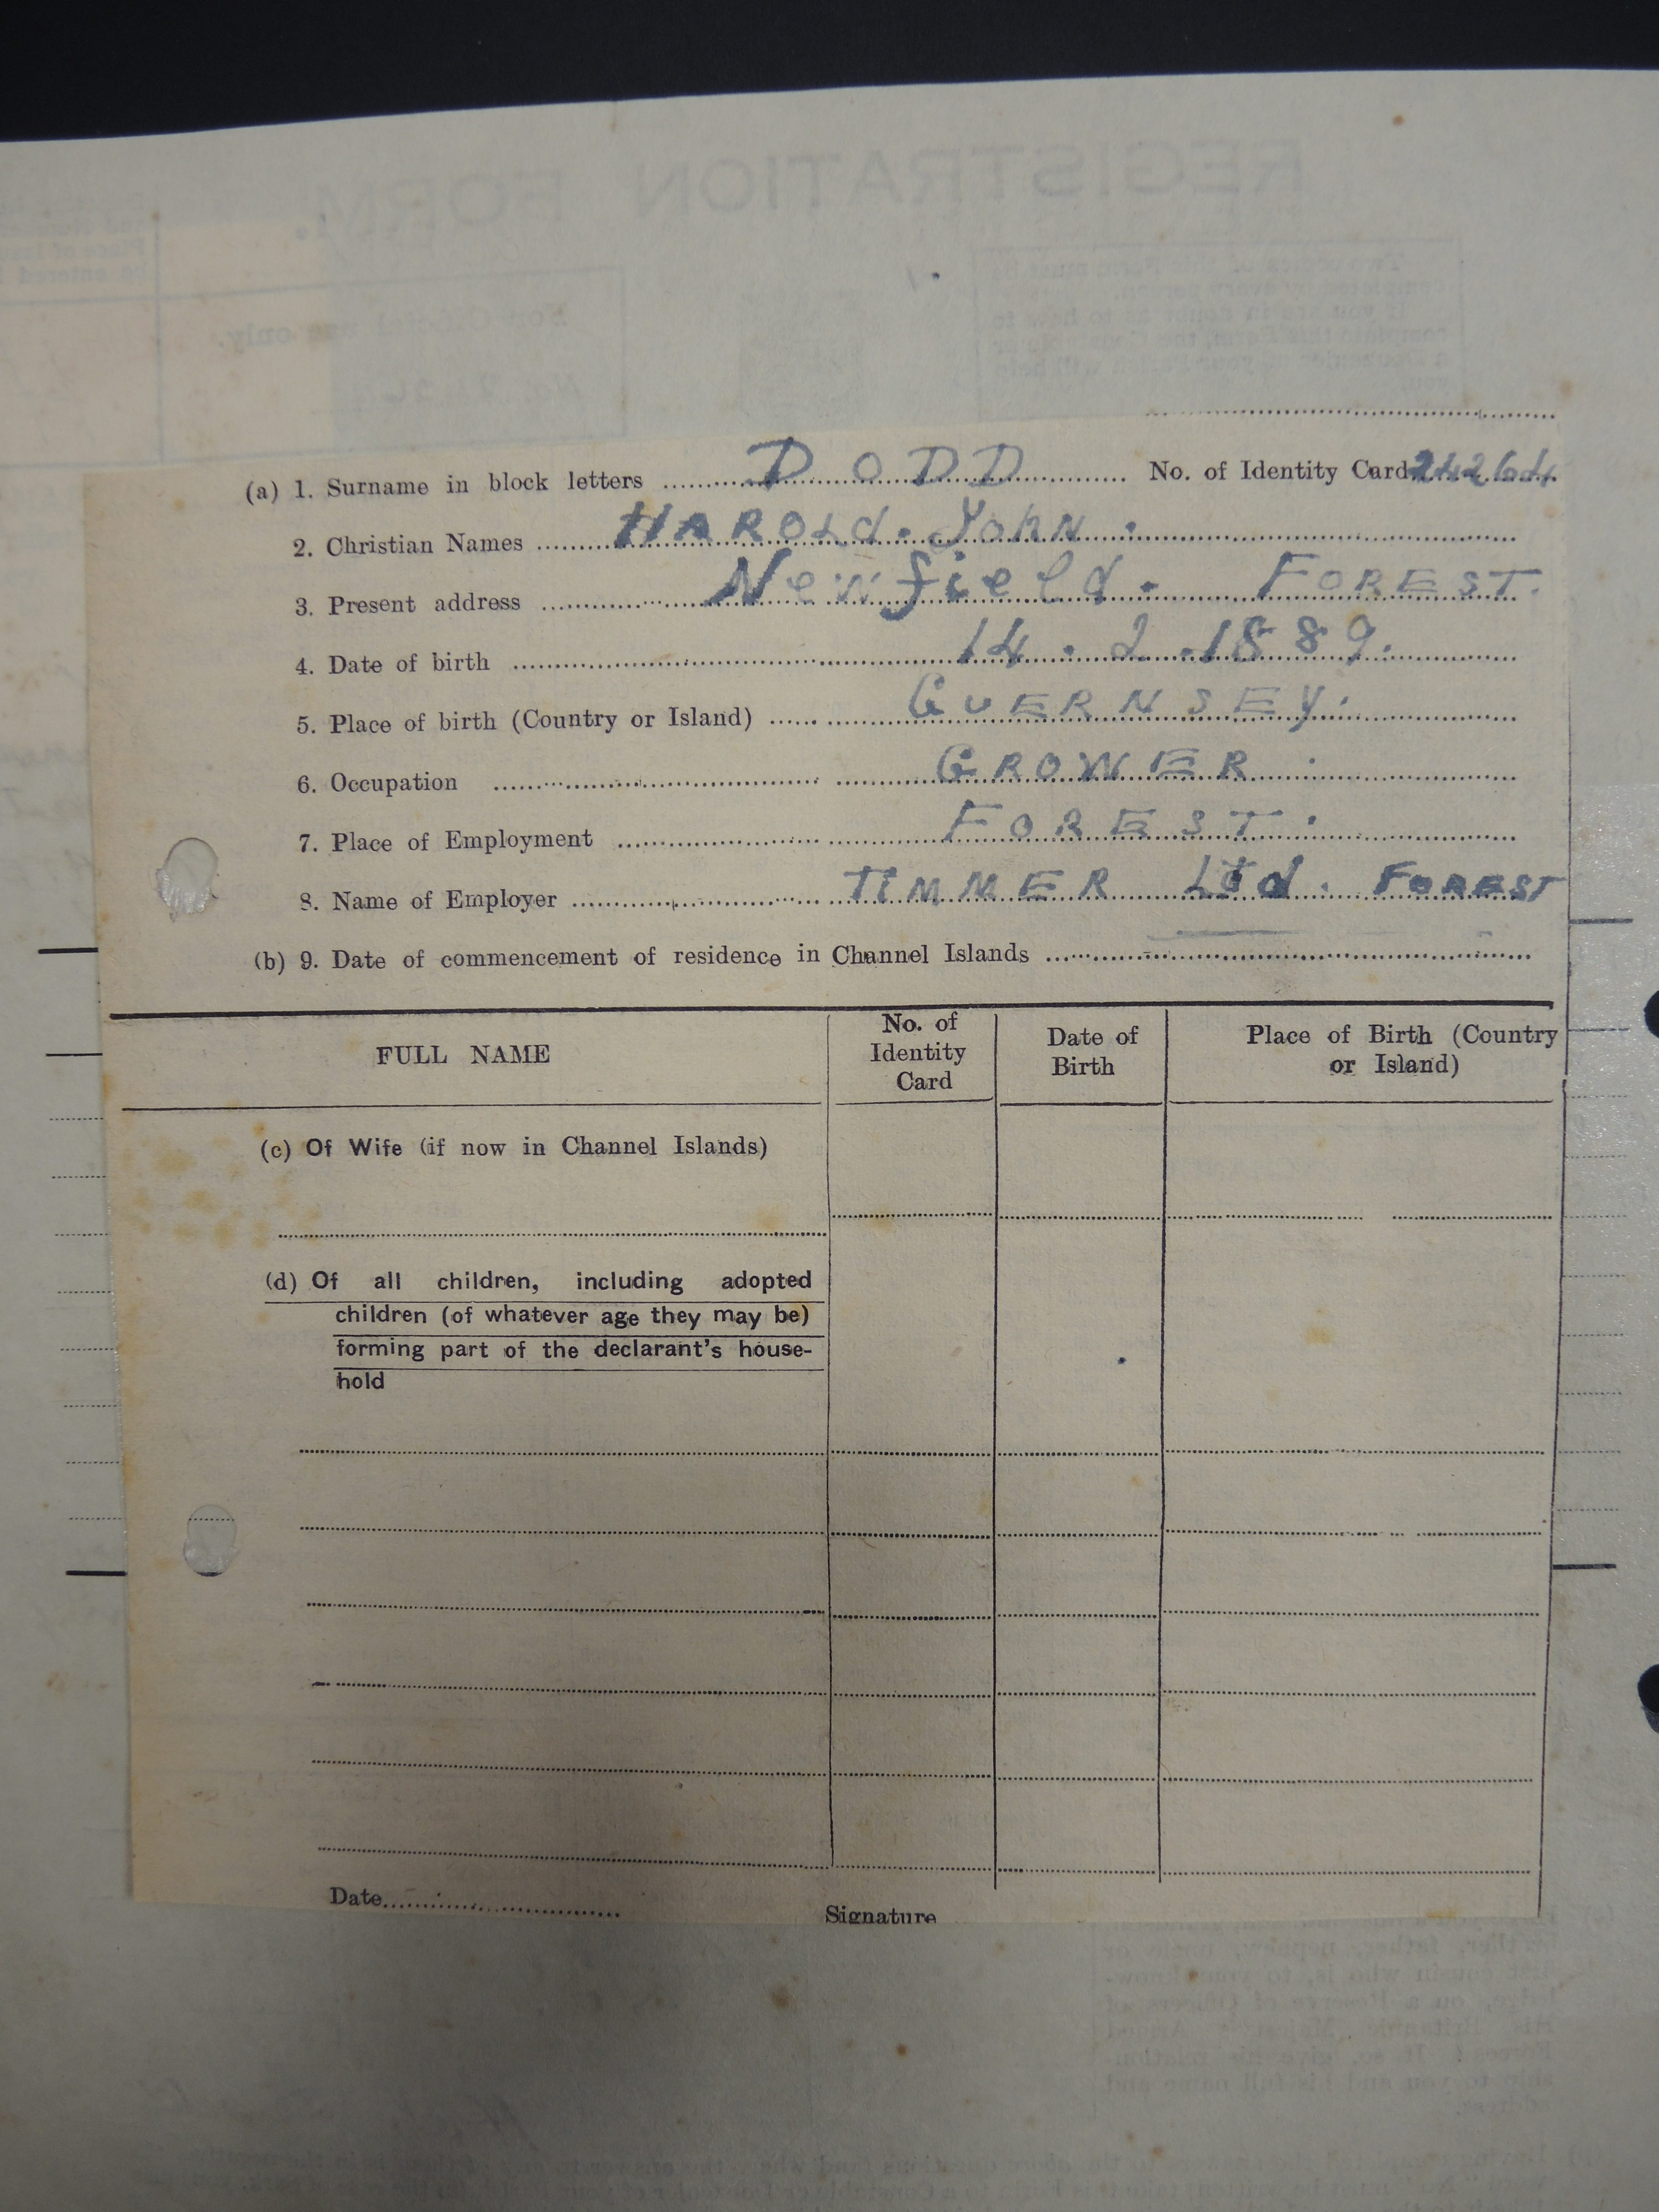 (a) 1. Surname in block letters DODD No. of Identity Card 24264
2. Christian Names HAROLd. JOhN.
3. Present address Newfield. FOREST.
4. Date of birth 14.2.1889.
5. Place of birth (Country or Island) GUERNSEY.
6. Occupation GROWER.
7. Place of Employment FOREST.
8. Name of Employer TIMMER Ltd. FOREST
(b) 9. Date of commencement of residence in Channel Islands
FULL NAME
No. of
Identity
Card
Date of
Birth
Place of Birth (Country
or Island)
(c) Of Wife (if now in Channel Islands)
(d) Of all children, including adopted
children (of whatever age they may be)
forming part of the declarant's house-
hold
Date
Signature